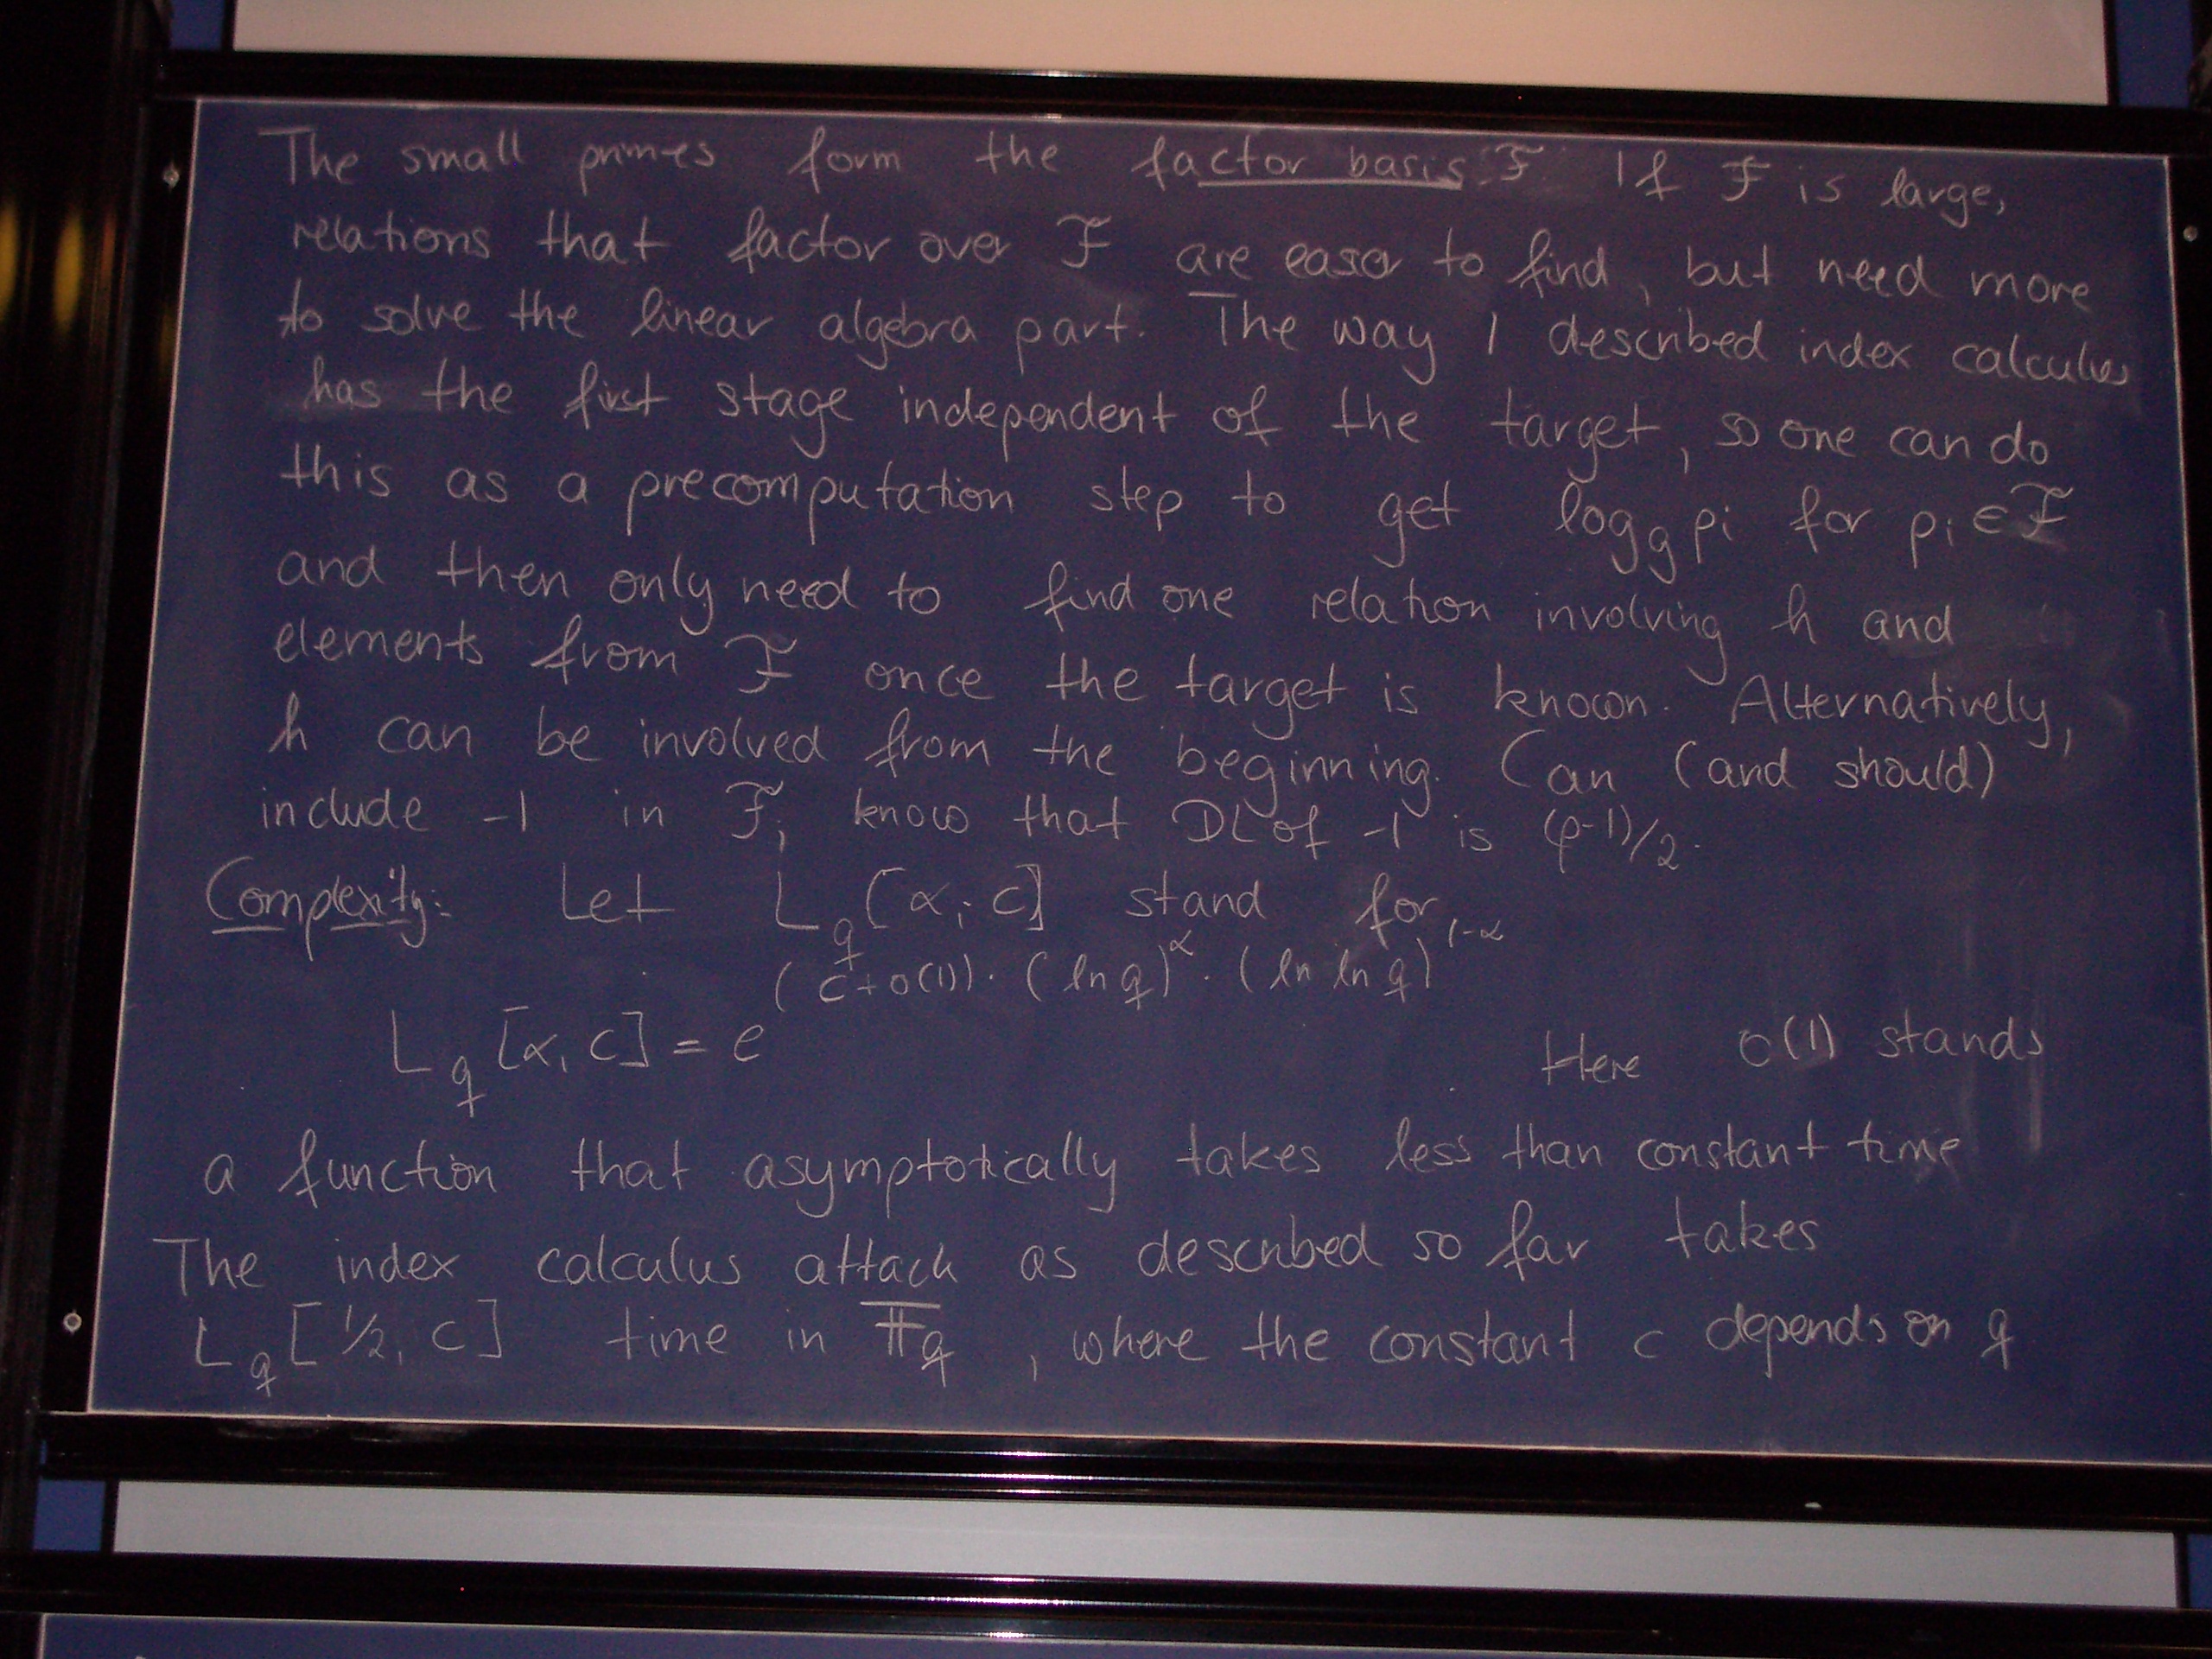 The small primes form the factor basis F. If F is large,
relations that factor over F are easer to find, but need more
to solve the linear algebra part. The way I described index calculus
has the first stage independent of the target, so one can do
this as a precomputation step to get log_g pi for pi ∈ F
and then only need to find one relation involving h and
elements from F once the target is known. Alternatively,
h can be involved from the beginning. Can (and should)
include -1 in F; know that DL of -1 is (p-1)/2.
Complexity: Let L_q [α, c] stand for
L_q [α, c] = e^((c+o(1))·(ln q)^α·(ln ln q)^(1-α)). Here o(1) stands
a function that asymptotically takes less than constant time
The index calculus attack as described so far takes
L_q [1/2, c] time in 𝔽_q, where the constant c depends on q